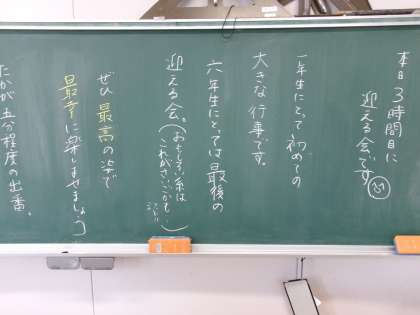 本日3時間目に
迎える会です
一年生にとって初めての
大きな行事です。
六年生にとっては最後の
迎える会。(おもしろい系は
これがさいごかも
ぜひ最高の姿で
最幸に楽しませましょう
たかが五分程度の出番。